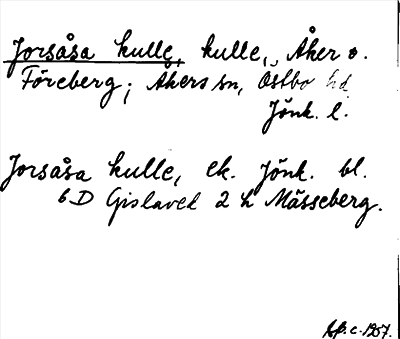 Jorsåsa kulle, kulle, Åker o.
Föreberg; Åkers sn, Östbo hd
Jönk. l.
Jorsåsa kulle, ek. Jönk. bl.
6 D Gislaved 2 h Mässeberg.
c. 1957.